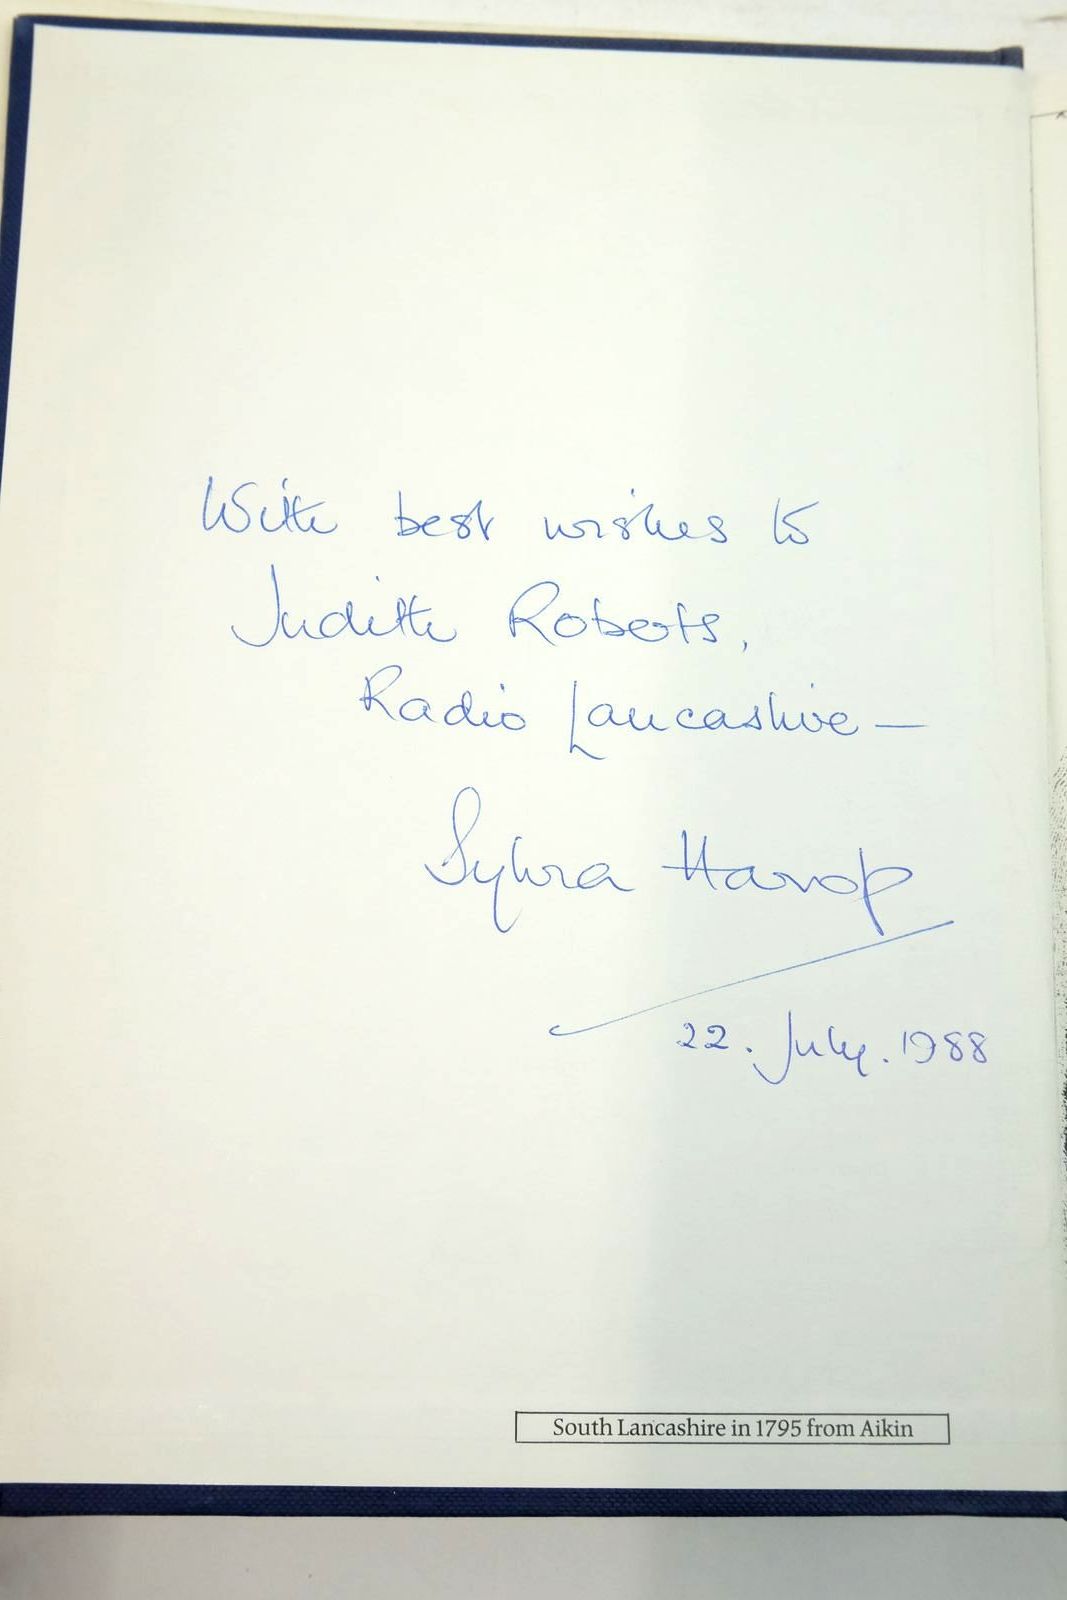 With best wishes to
Judith Roberts,
Radio Lancashire —
Sylvia Harrop
22. July. 1988
South Lancashire in 1795 from Aikin